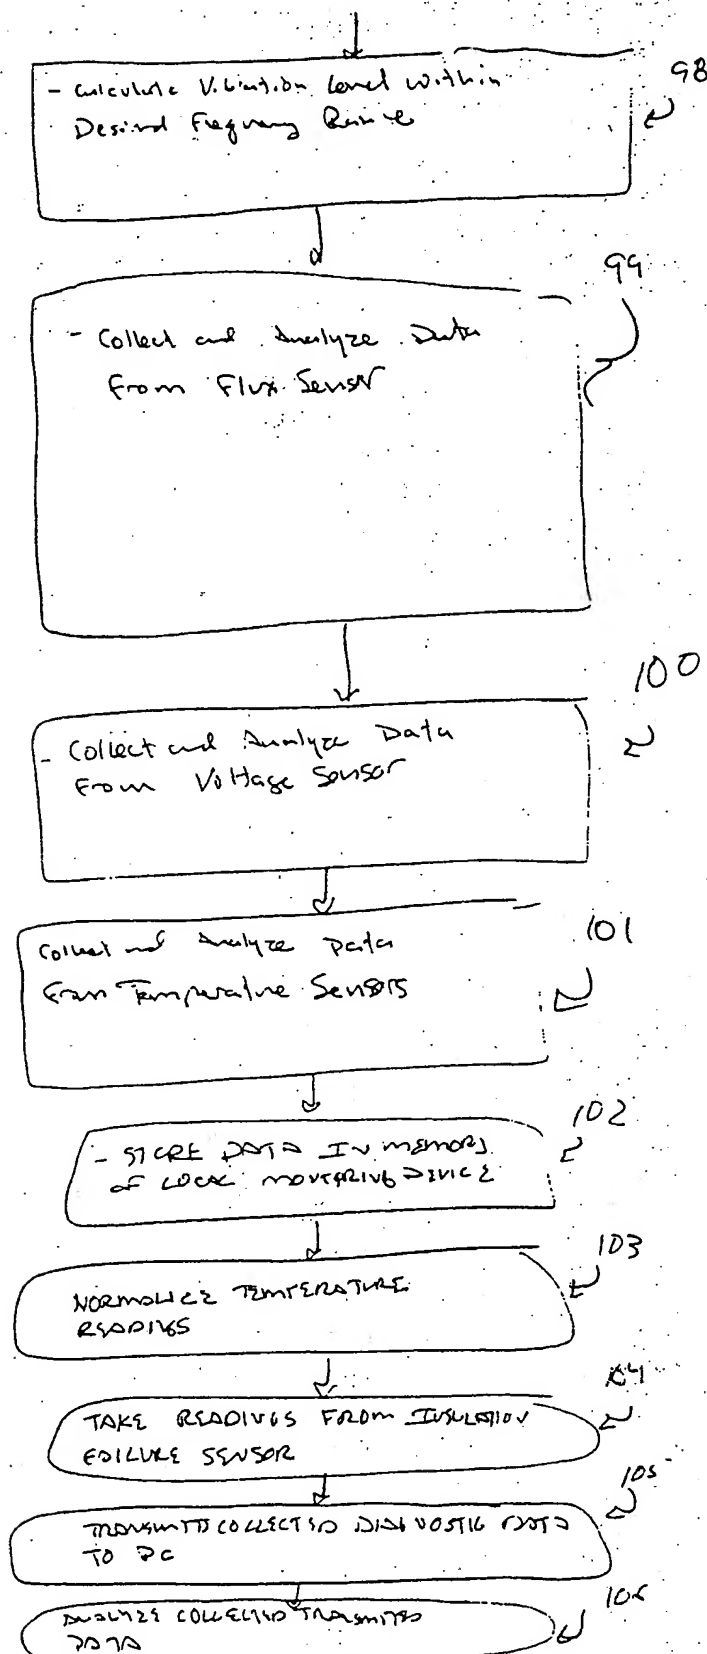 - Calculate Vibration Level within
Desired Frequency Range
98
- Collect and Analyze Data
From Flux Sensor
99
- Collect and Analyze Data
From Voltage Sensor
100
Collect and Analyze Data
From Temperature Sensors
101
- STORE DATA IN MEMORY
OF LOCAL MONITORING DEVICE
102
NORMALIZE TEMPERATURE
READINGS
103
TAKE READINGS FROM INSULATION
FAILURE SENSOR
104
TRANSMITT COLLECTED DIAGNOSTIC DATA
TO PC
105
ANALYZE COLLECTED TRANSMITTED
DATA
106